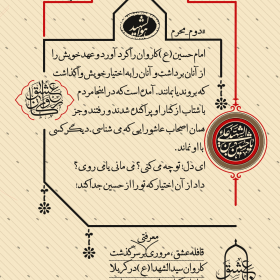 دوم محرم
امام حسین (ع) کاروان را گرد آورد و عهد خویش را
از آنان برداشت و آنان را به اختیار خویش واگذاشت
که بروند یا بمانند. آمده است که در انتها مردم
با شتاب از کنار او پراکنده شدند و رفتند و جز
همان اصحاب عاشورایی که می شناسی، دیگر کسی
با او نماند.
ای دل؛ تو چه می کنی؟ می مانی یا می روی؟
داد از آن اختیار که تو را از حسین جدا کند؛
معرفتی
قافله عشق، مروری بر سرگذشت
کاروان سیدالشهدا (ع) در کربلا